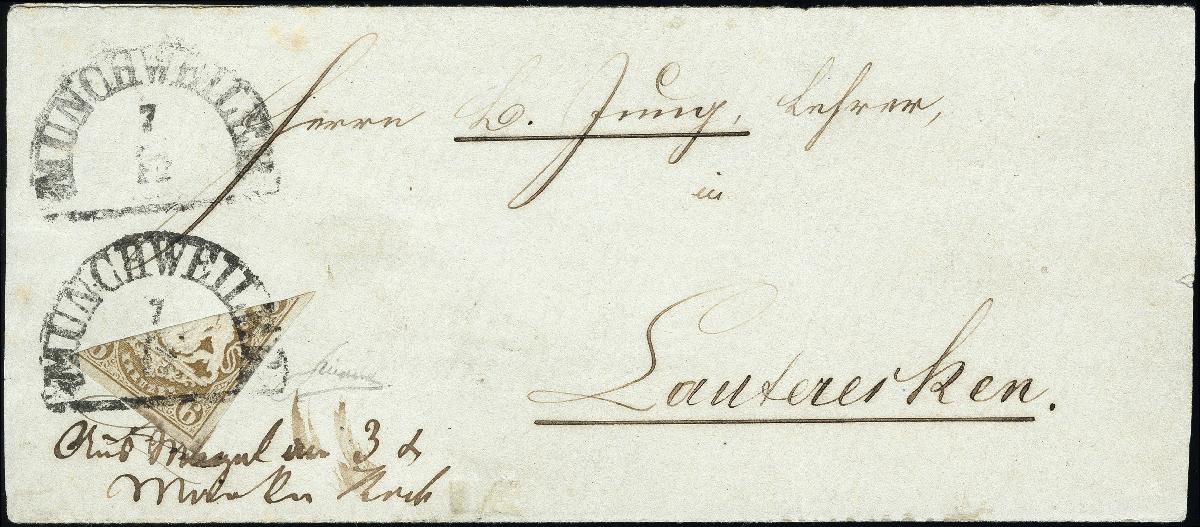 MÜNCHWEILER
7
12
Herrn L. Jung, Lehrer,
in
Lauterecken.
MÜNCHWEILER
7
12
6
Aus Mangel an 3 x
Marken